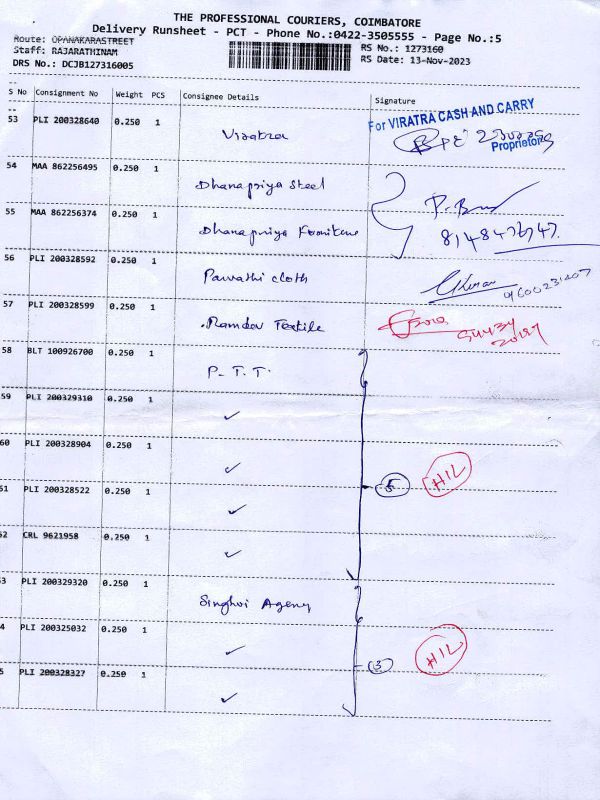 THE PROFESSIONAL COURIERS, COIMBATORE
Delivery Runsheet - PCT - Phone No.:0422-3505555 - Page No.:5
Route: OPANAKARASTREET
RS No.: 1273160
Staff: RAJARATHINAM
RS Date: 13-Nov-2023
DRS No.: DCJB127316005
S No Consignment No Weight PCS Consignee Details Signature
53 PLI 200328640 0.250 1 Viratra
For VIRATRA CASH AND CARRY
Proprietor
54 MAA 862256495 0.250 1 Dhanapriya Steel
55 MAA 862256374 0.250 1 Dhanapriya Furniture
8148476747
56 PLI 200328592 0.250 1 Parvathi cloth
9600231407
57 PLI 200328599 0.250 1 Ramdev Textile
58 BLT 100926700 0.250 1 P. T. T.
59 PLI 200329310 0.250 1 ✓
60 PLI 200328904 0.250 1 ✓
5 HIL
51 PLI 200328522 0.250 1 ✓
52 CRL 9621958 0.250 1 ✓
3 PLI 200329320 0.250 1 Singhvi Agency
4 PLI 200325032 0.250 1 ✓
3 HIL
5 PLI 200328327 0.250 1 ✓